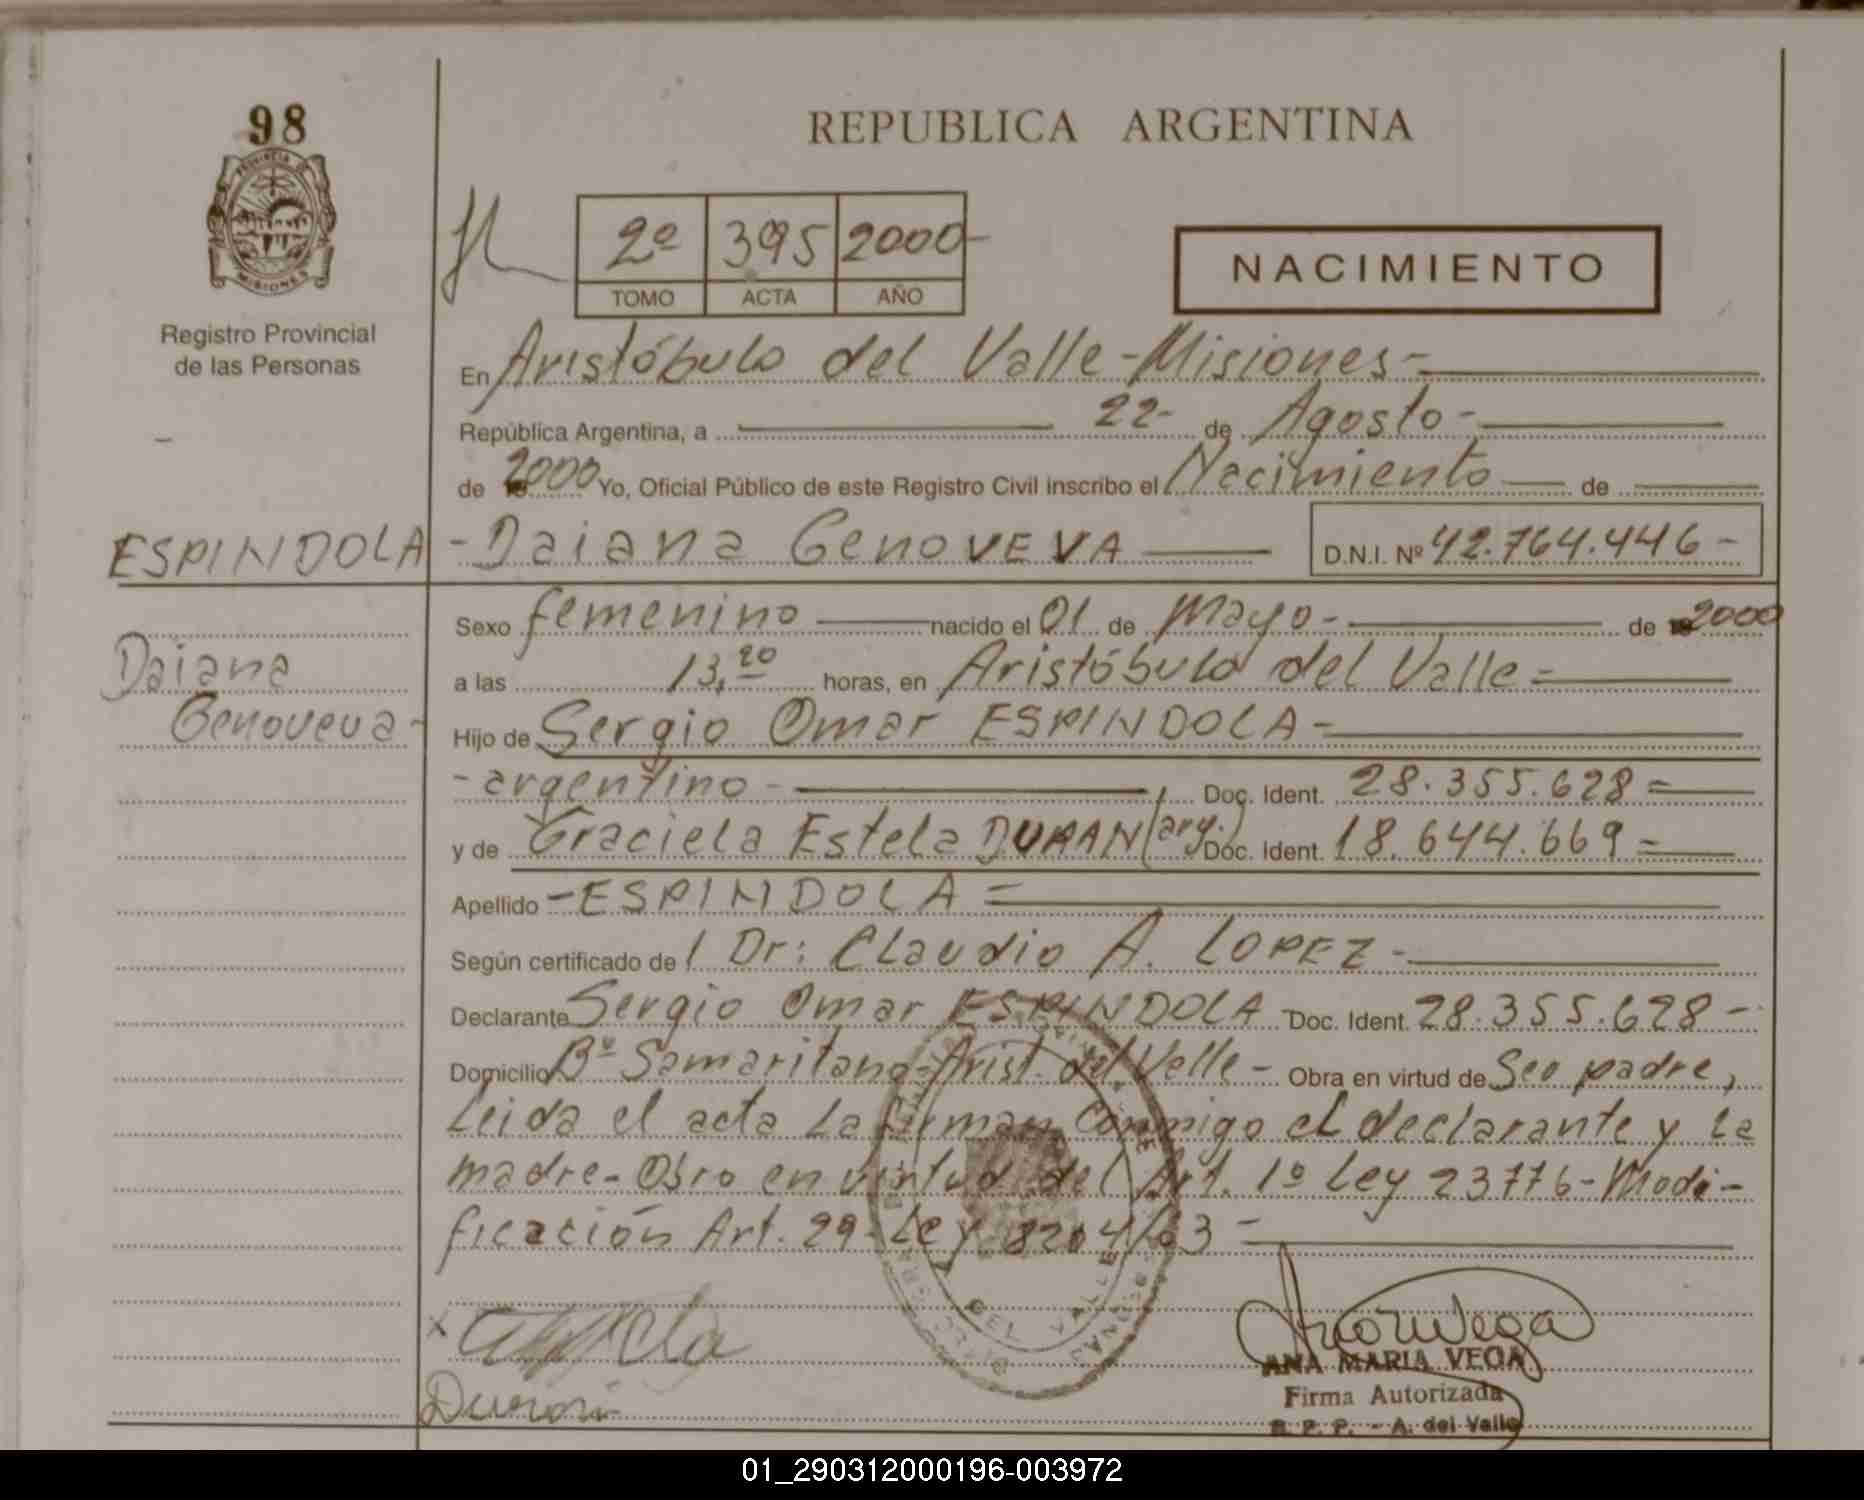 98
PROVINCIA DE
MISIONES
Registro Provincial
de las Personas
REPUBLICA ARGENTINA
2º 395 2000-
TOMO ACTA AÑO
NACIMIENTO
En Aristóbulo del Valle-Misiones-
República Argentina, a 22- de Agosto-
de 2000 Yo, Oficial Público de este Registro Civil inscribo el Nacimiento de
ESPINDOLA - Daiana GenoVEVA D.N.I. Nº 42.764.446-
Daiana
Genoveva-
Sexo femenino nacido el 01 de Mayo- de 2000
a las 13,20 horas, en Aristóbulo del Valle-
Hijo de Sergio Omar ESPINDOLA-
-argentino- Doc. Ident. 28.355.628=
y de Graciela Estela DURAN (arg.) Doc. Ident. 18.644.669=
Apellido -ESPINDOLA=
Según certificado de l Dr: Claudio A. LOPEZ-
Declarante Sergio Omar ESPINDOLA Doc. Ident. 28.355.628-
Domicilio Bº Samaritano-Arist. del Valle- Obra en virtud de Ser padre,
Leida el acta la firman conmigo el declarante y la
madre-Obro en virtud del Art. 1º Ley 23776-Modi-
ficación Art. 29-Ley 8204/63-
x
Duran
ANA MARIA VEGA
Firma Autorizada
R. P. P. - A. del Valle
DEL VALLE
01_290312000196-003972